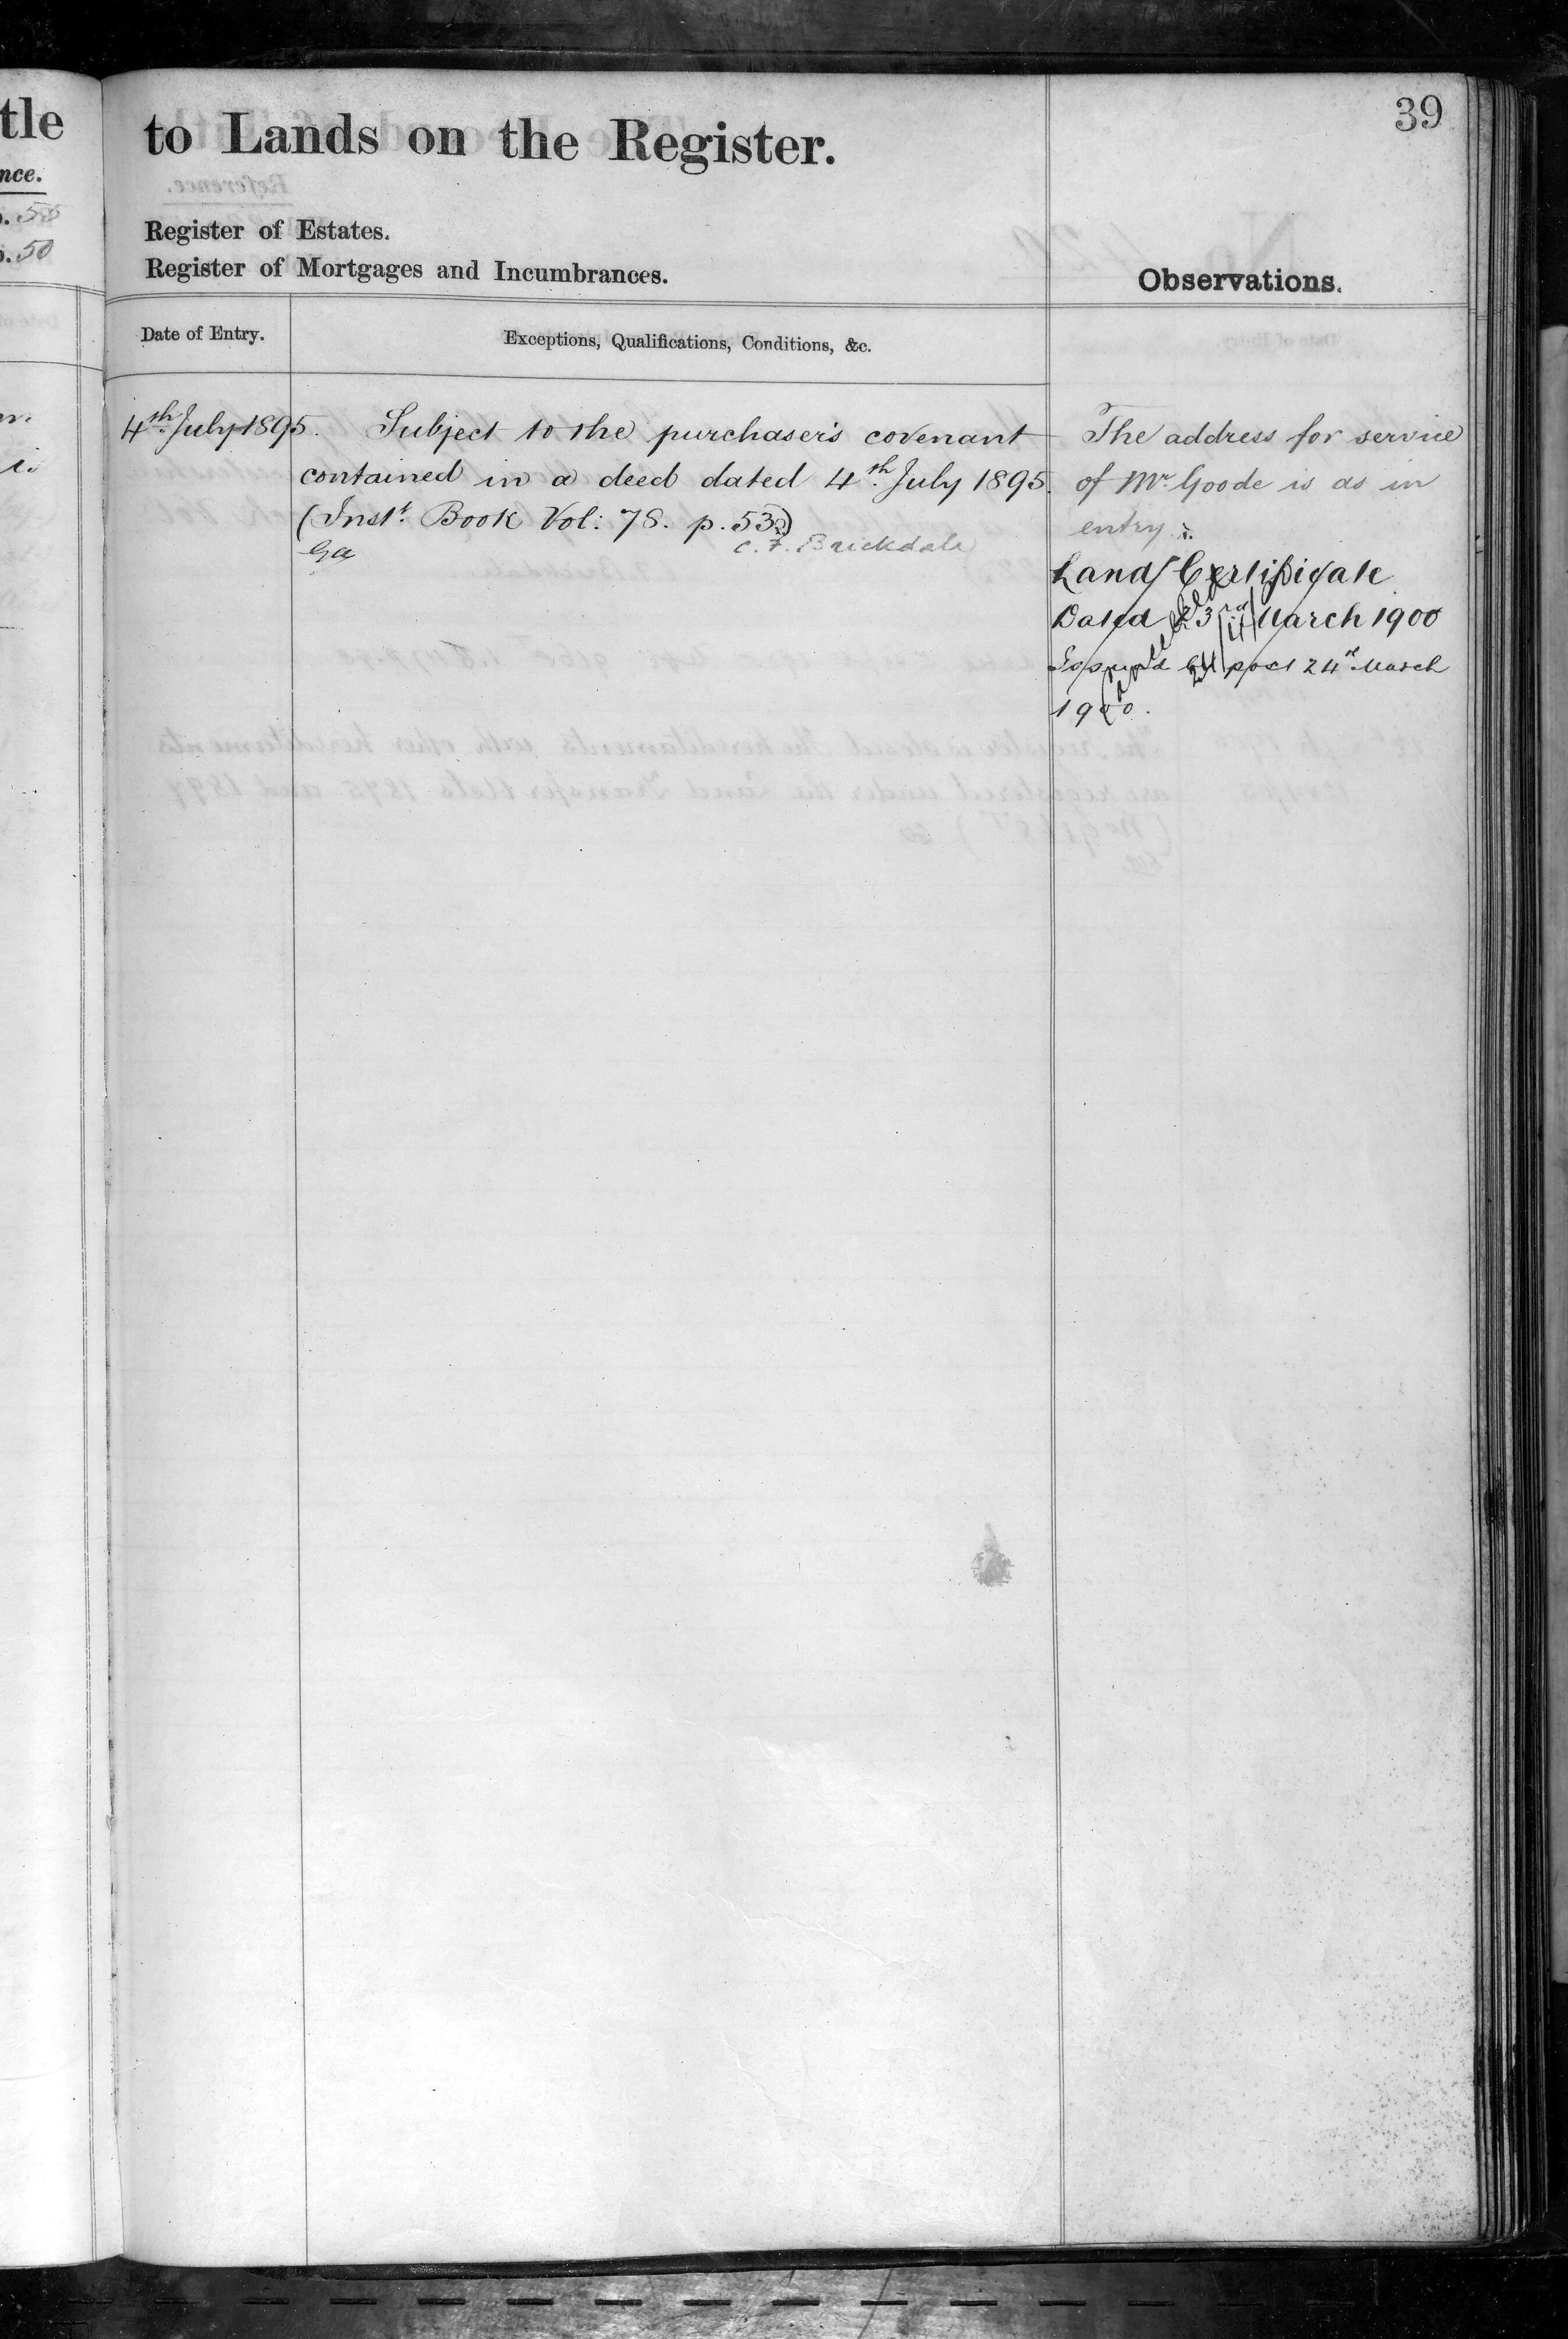 tle
nce.
55
50
39
to Lands on the Register.
Register of Estates.
Register of Mortgages and Incumbrances.
Observations.
Date of Entry.
Exceptions, Qualifications, Conditions, &c.
4th July 1895. Subject to the purchaser's covenant
contained in a deed dated 4th July 1895.
(Inst. Book Vol: 78. p. 532)
C. F. Brickdale
The address for service
of Mr. Goode is as in
entry i.
Land Certificate
Dated 23rd March 1900
Issued by post 24th March
1900.
Cancelled